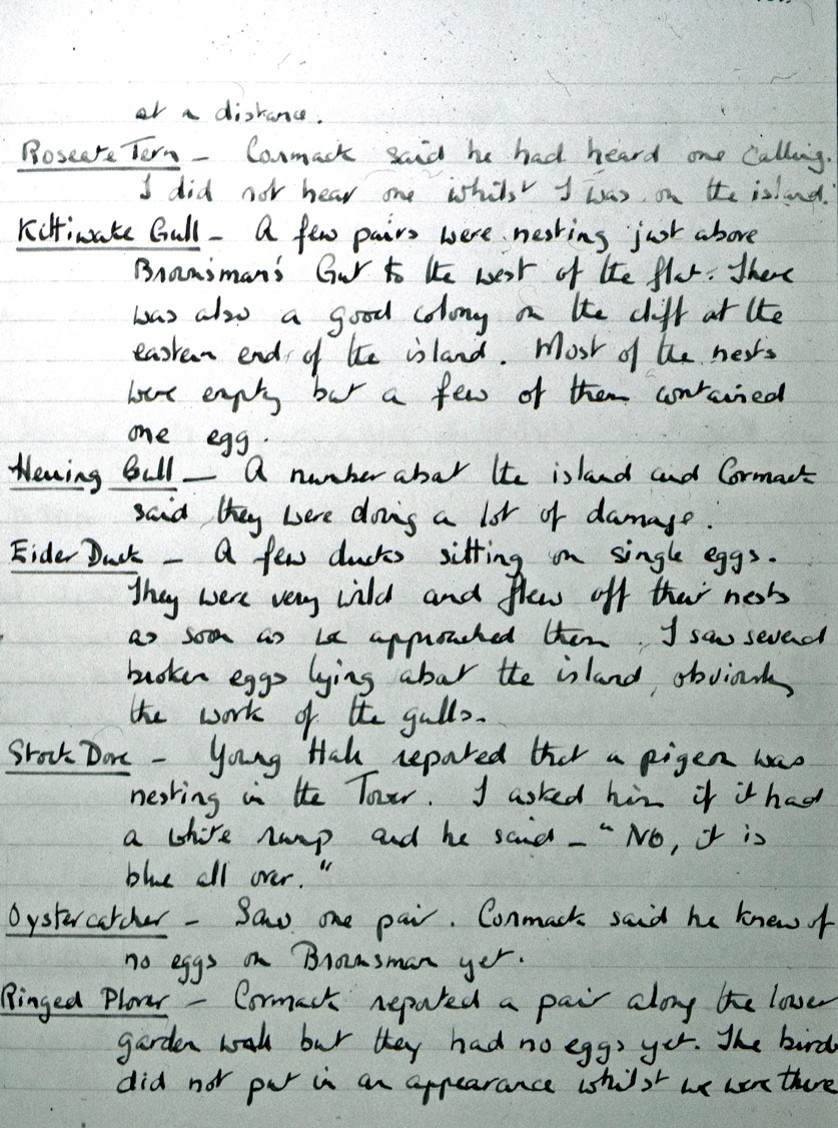 at a distance.
Roseate Tern – Cormack said he had heard one calling.
I did not hear one whilst I was on the island.
Kittiwake Gull – A few pairs were nesting just above
Brownsman's Gut to the west of the flat. There
was also a good colony on the cliff at the
eastern end of the island. Most of the nests
were empty but a few of them contained
one egg.
Herring Gull – A number about the island and Cormack
said they were doing a lot of damage.
Eider Duck – A few ducks sitting on single eggs.
They were very wild and flew off their nests
as soon as we approached them. I saw several
broken eggs lying about the island, obviously
the work of the gulls.
Stock Dove – Young Hall reported that a pigeon was
nesting in the Tower. I asked him if it had
a white rump and he said – "No, it is
blue all over."
Oystercatcher – Saw one pair. Cormack said he knew of
no eggs on Brownsman yet.
Ringed Plover – Cormack reported a pair along the lower
garden wall but they had no eggs yet. The bird
did not put in an appearance whilst we were there